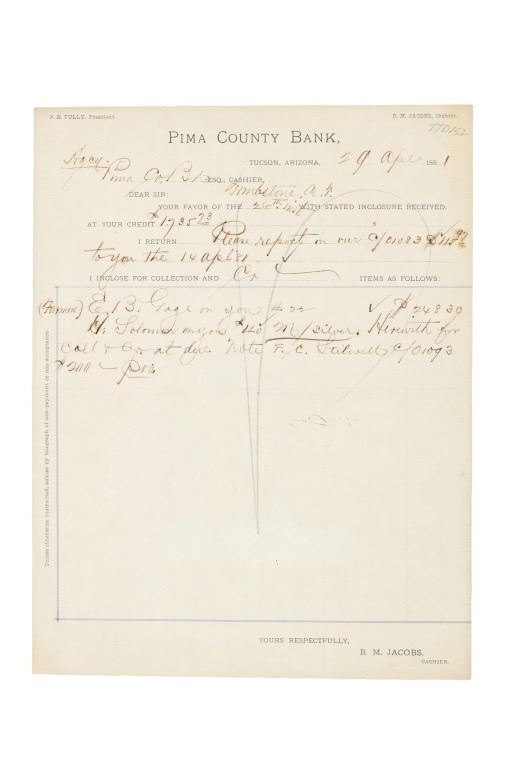 P. R. TULLY, President
B. M. JACOBS, Cashier.
PIMA COUNTY BANK,
Agcy.
TUCSON, ARIZONA, 29 Apl 1881
Pima Co. Bk ESQ., CASHIER,
Tombstone, A.T.
DEAR SIR:
YOUR FAVOR OF THE 26th inst WITH STATED INCLOSURE RECEIVED.
AT YOUR CREDIT $1735 23 $
I RETURN Please report on our C/01083
to you the 14 apl 81
I INCLOSE FOR COLLECTION AND Cr ITEMS AS FOLLOWS:
E. B. Gage on you # 22 ✓ $ 248 30
H. Solomon on you $40 M/silver. Herewith for
call & Cr. at due Note F. C. Stilwell C/01093
$200 —
Unless otherwise instructed, advise by telegraph of non-payment or non-acceptance
YOURS RESPECTFULLY,
B. M. JACOBS,
CASHIER.